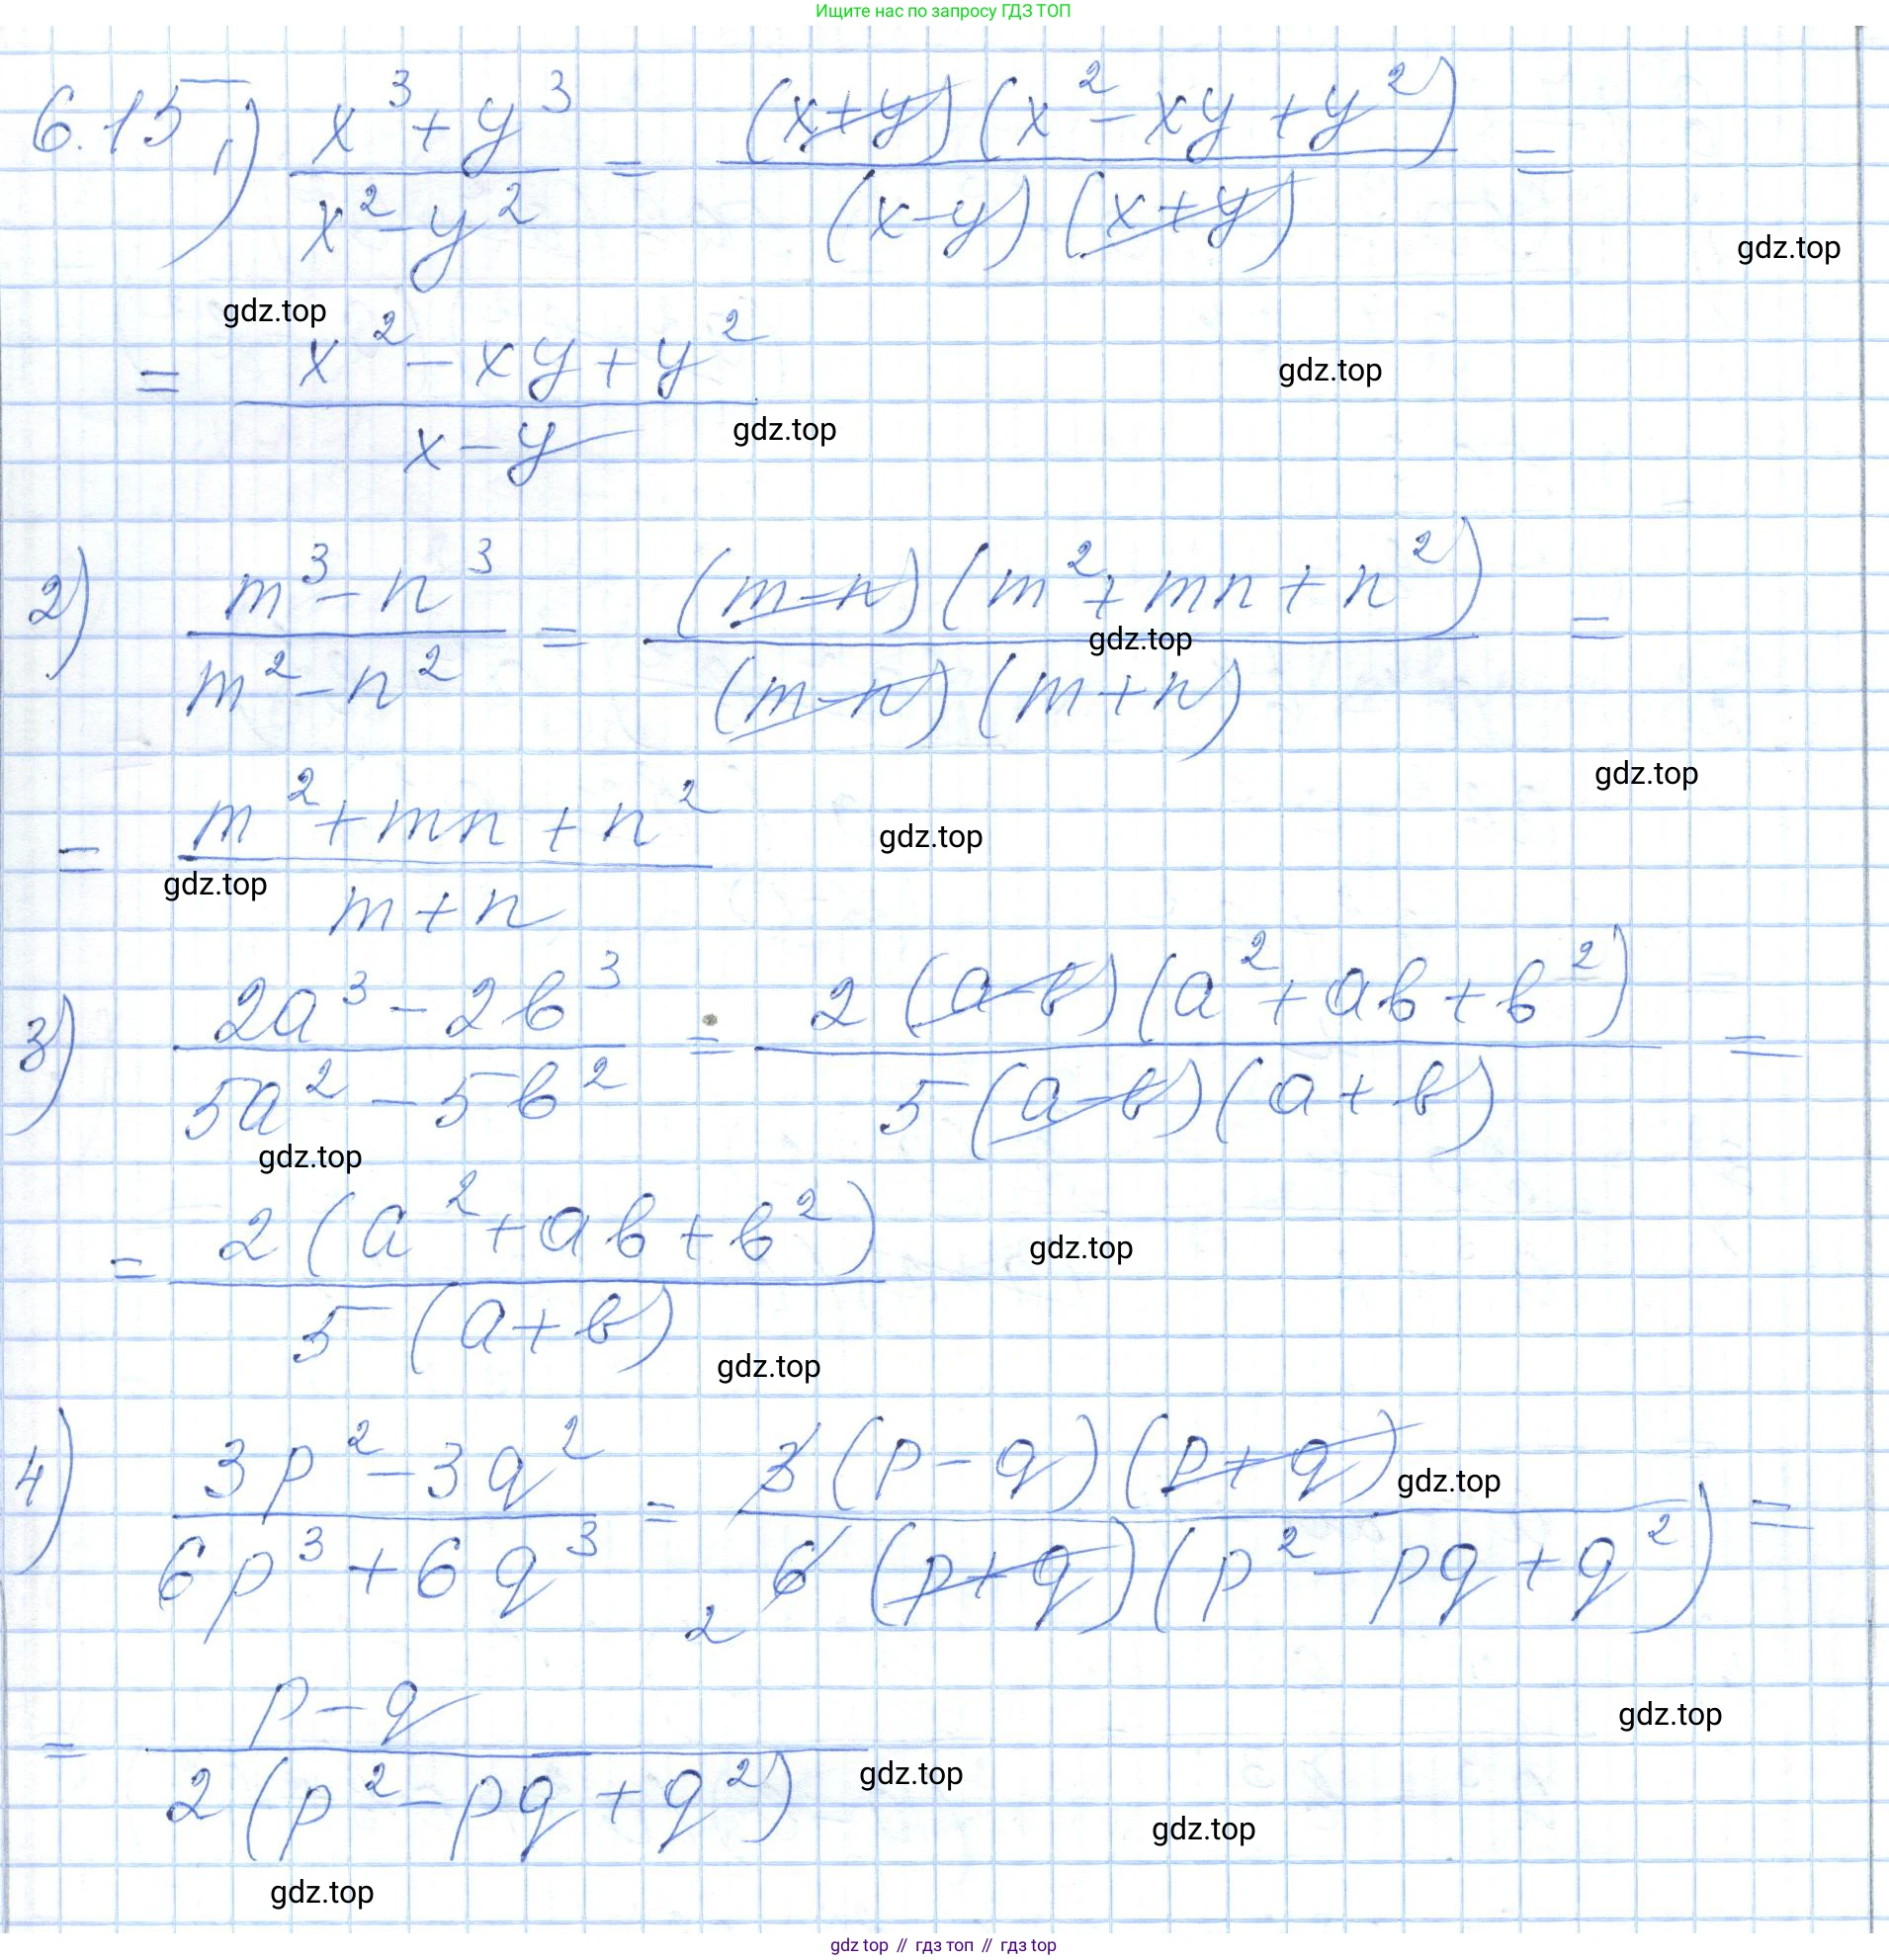 Ищите нас по запросу ГДЗ ТОП
6.15 1) (x³ + y³)/(x² - y²) = ((x+y)(x² - xy + y²))/((x-y)(x+y)) =
gdz.top
gdz.top
= (x² - xy + y²)/(x - y)
gdz.top
gdz.top
2) (m³ - n³)/(m² - n²) = ((m-n)(m² + mn + n²))/((m-n)(m+n)) =
gdz.top
gdz.top
= (m² + mn + n²)/(m + n)
gdz.top
gdz.top
3) (2a³ - 2b³)/(5a² - 5b²) = (2(a-b)(a² + ab + b²))/(5(a-b)(a+b)) =
gdz.top
= (2(a² + ab + b²))/(5(a+b))
gdz.top
gdz.top
4) (3p² - 3q²)/(6p³ + 6q³) = (3(p-q)(p+q))/(6(p+q)(p² - pq + q²)) =
gdz.top
2
= (p - q)/(2(p² - pq + q²))
gdz.top
gdz.top
gdz.top
gdz.top
gdz top // гдз топ // гдз top